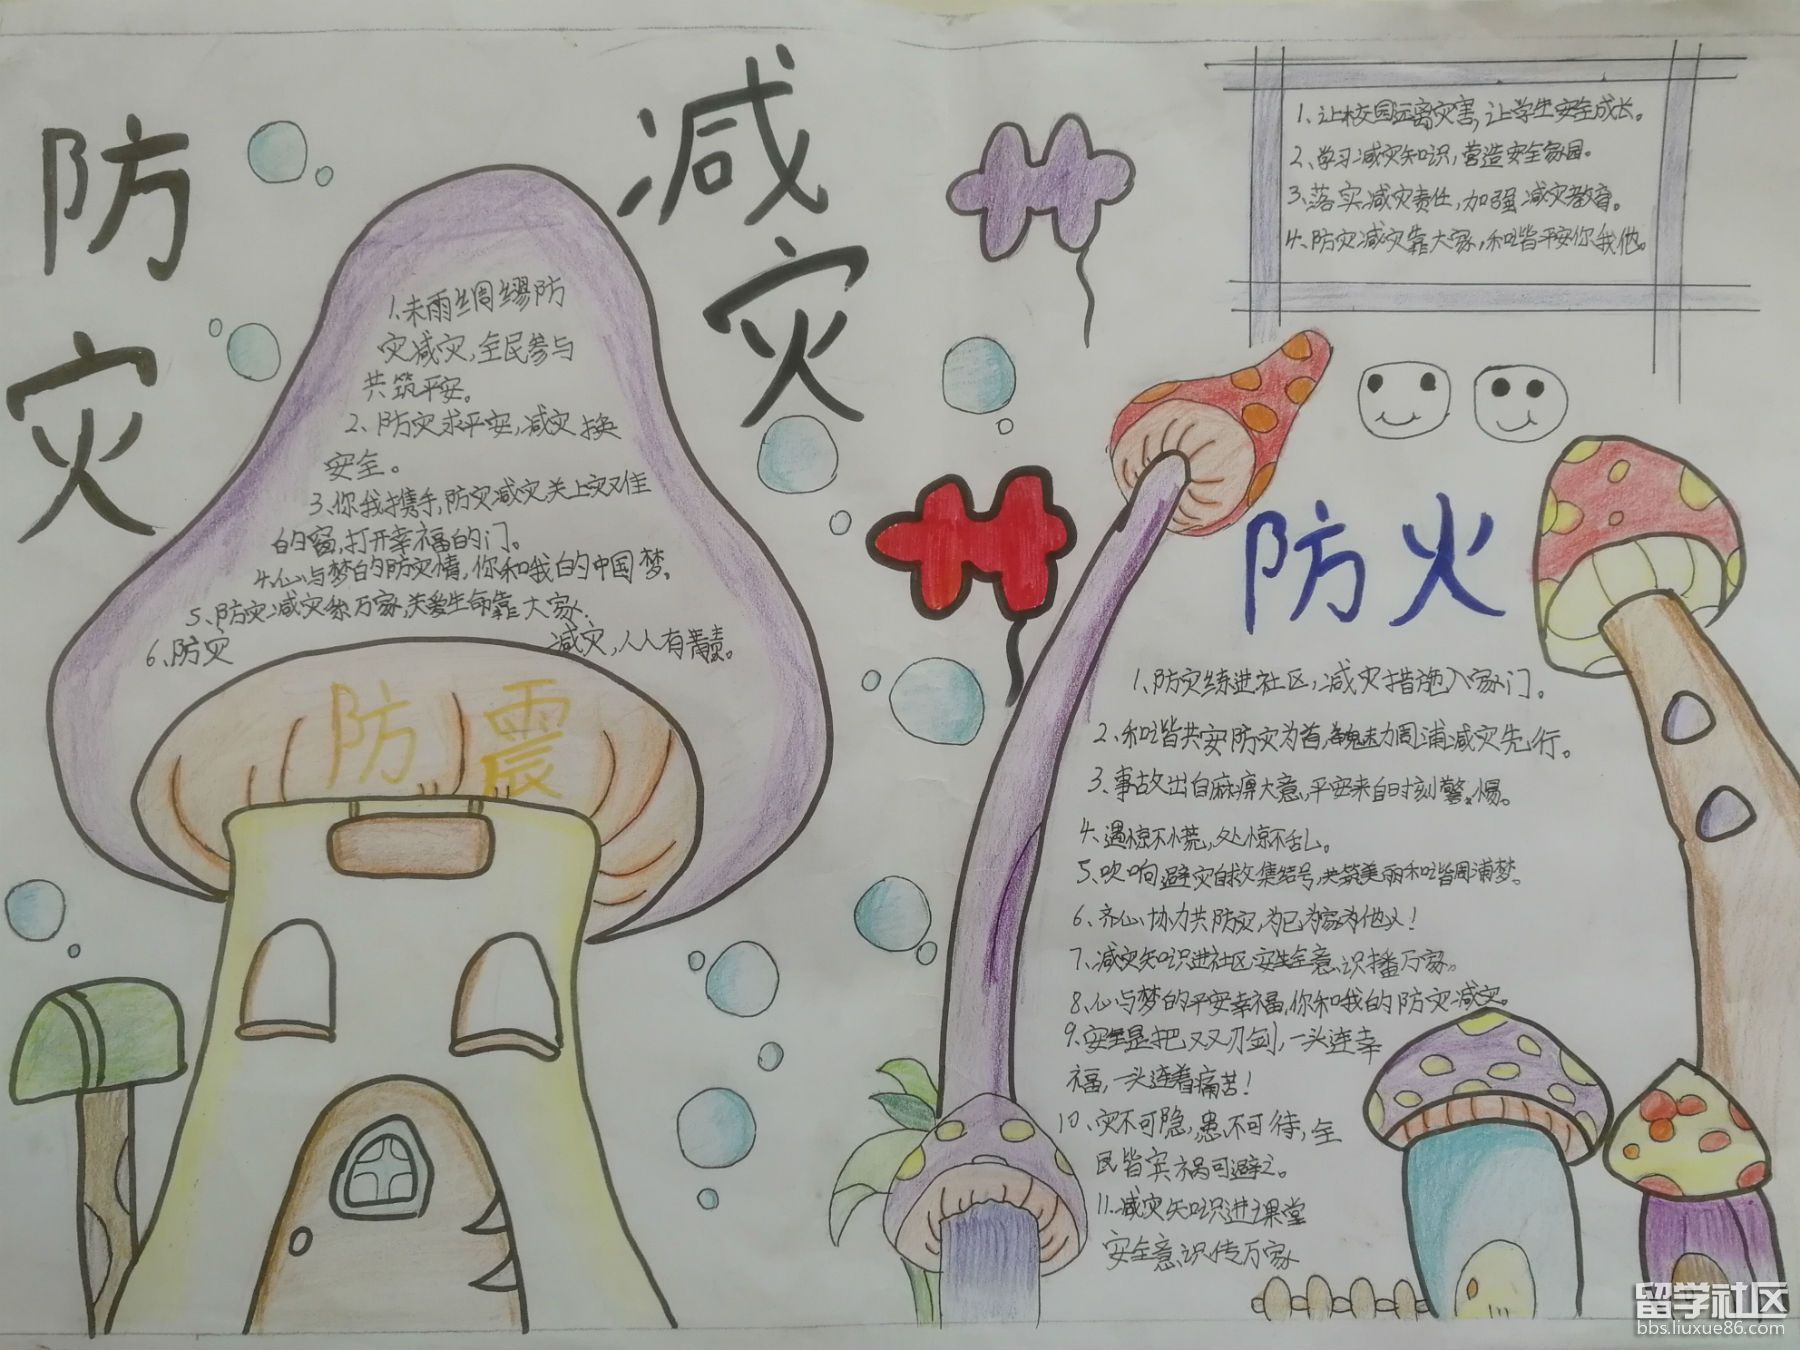 防灾
减灾
1、未雨绸缪防
灾减灾,全民参与
共筑平安。
2、防灾求平安,减灾换
安全。
3、你我携手,防灾减灾关上灾难
的窗,打开幸福的门。
4、心与梦的防灾情,你和我的中国梦。
5、防灾减灾系万家,关爱生命靠大家。
6、防灾 减灾,人人有责。
防震
1、让校园远离灾害,让学生安全成长。
2、学习减灾知识,营造安全家园。
3、落实减灾责任,加强减灾教育。
4、防灾减灾靠大家,和谐平安你我他。
防火
1、防灾练进社区,减灾措施入家门。
2、和谐共安防灾为首,魅力周浦减灾先行。
3、事故出自麻痹大意,平安来自时刻警惕。
4、遇惊不慌,处惊不乱。
5、吹响避灾自救集结号,共筑美丽和谐周浦梦。
6、齐心协力共防灾,为己为家为他人!
7、减灾知识进社区安全意识播万家。
8、心与梦的平安幸福,你和我的防灾减灾。
9、安全是把双刃剑,一头连幸
福,一头连着痛苦!
10、灾不可隐,患不可待,全
民皆宾祸可避之。
11、减灾知识进课堂
安全意识传万家
留学社区
bbs.liuxue86.com